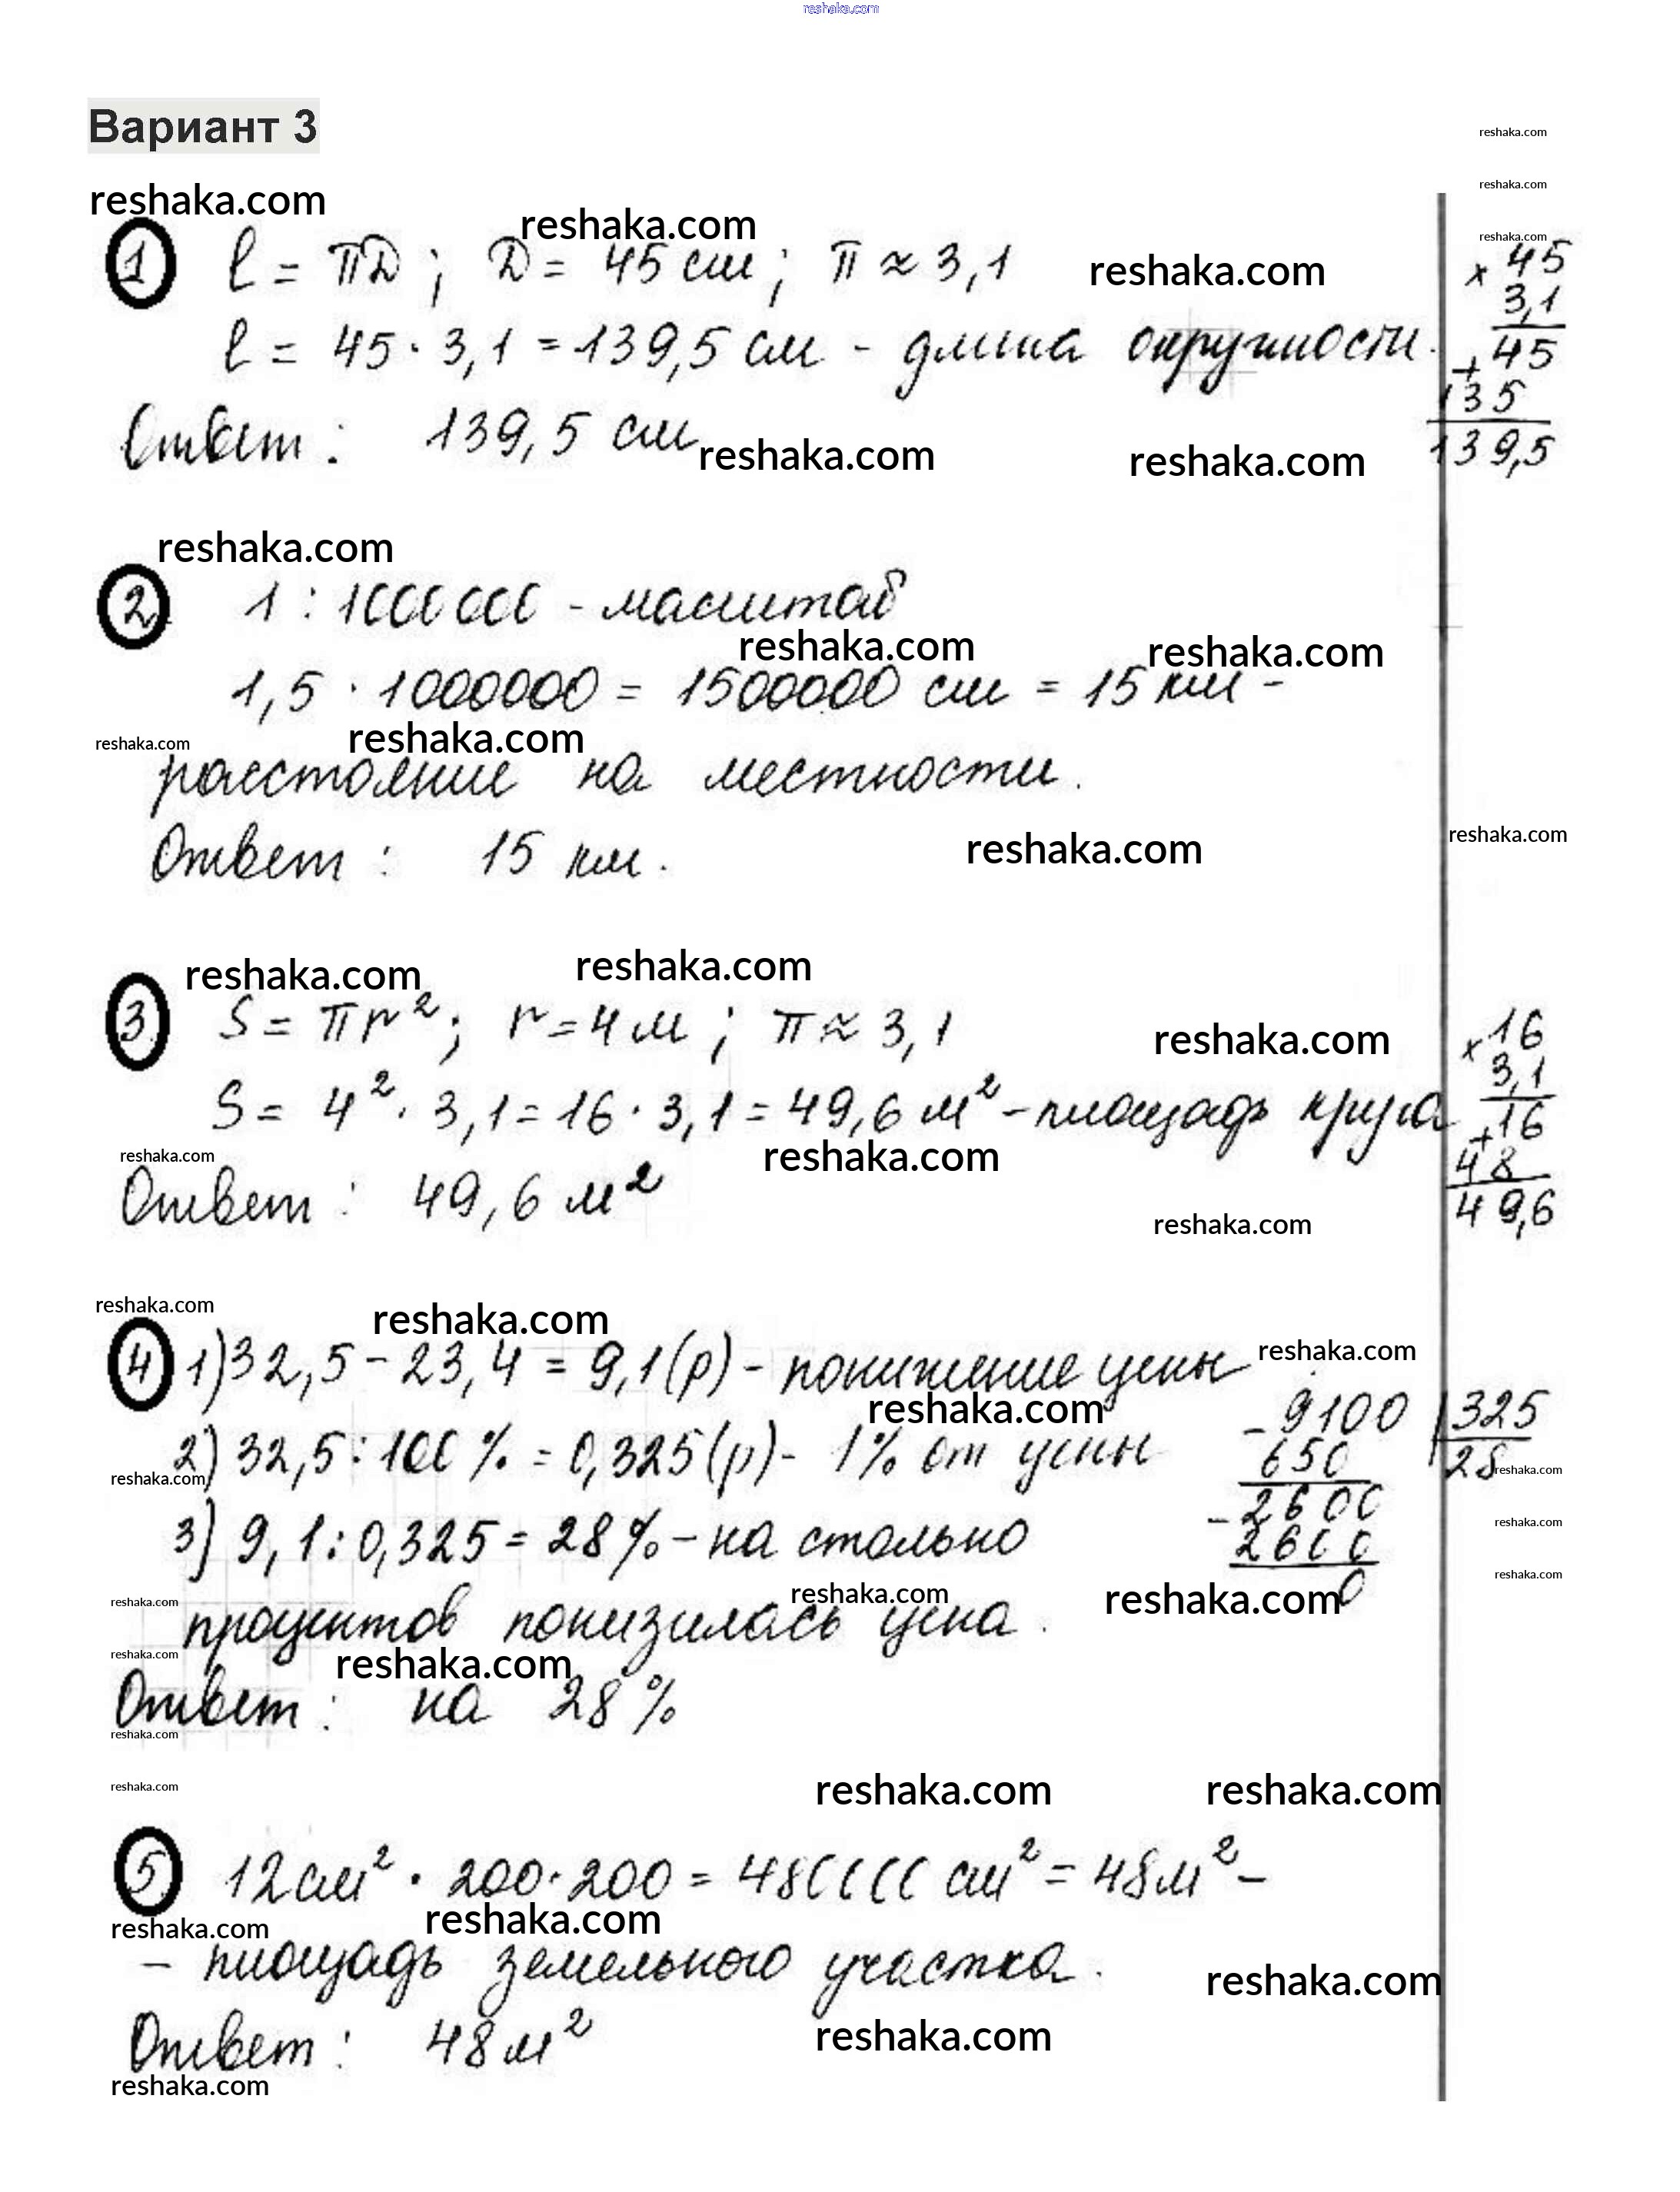 reshaka.com
Вариант 3
reshaka.com
reshaka.com
reshaka.com
reshaka.com
reshaka.com
① l = πD ; D = 45 см ; π ≈ 3,1
reshaka.com
× 45
3,1
l = 45 · 3,1 = 139,5 см - длина окружности.
+ 45
135
139,5
Ответ : 139,5 см
reshaka.com
reshaka.com
reshaka.com
② 1 : 1000000 - масштаб
reshaka.com
reshaka.com
1,5 · 1000000 = 1500000 см = 15 км -
reshaka.com
reshaka.com
расстояние на местности.
Ответ : 15 км.
reshaka.com
reshaka.com
reshaka.com
reshaka.com
③ S = πr² ; r = 4 м ; π ≈ 3,1
reshaka.com
× 16
3,1
S = 4² · 3,1 = 16 · 3,1 = 49,6 м² - площадь круга
+ 16
48
49,6
reshaka.com
reshaka.com
Ответ : 49,6 м²
reshaka.com
reshaka.com
reshaka.com
④ 1) 32,5 - 23,4 = 9,1 (р) - понижение цены
reshaka.com
reshaka.com
- 9100 | 325
650 28
2) 32,5 : 100 % = 0,325 (р) - 1% от цены
reshaka.com
reshaka.com
- 2600
2600
0
3) 9,1 : 0,325 = 28 % - на столько
reshaka.com
reshaka.com
reshaka.com
reshaka.com
reshaka.com
процентов понизилась цена.
reshaka.com
reshaka.com
Ответ : на 28 %
reshaka.com
reshaka.com
reshaka.com
reshaka.com
⑤ 12 см² · 200 · 200 = 480000 см² = 48 м² -
reshaka.com
reshaka.com
- площадь земельного участка.
reshaka.com
Ответ : 48 м²
reshaka.com
reshaka.com